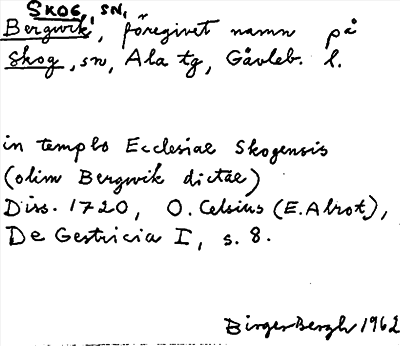 SKOG, SN,
Bergwik, föregivet namn på
Skog, sn, Ala tg, Gävleb. l.
in templo Ecclesiae Skogensis
(olim Bergwik dictae)
Diss. 1720, O. Celsius (E. Alrot),
De Gestricia I, s. 8.
Birger Bergh 1962